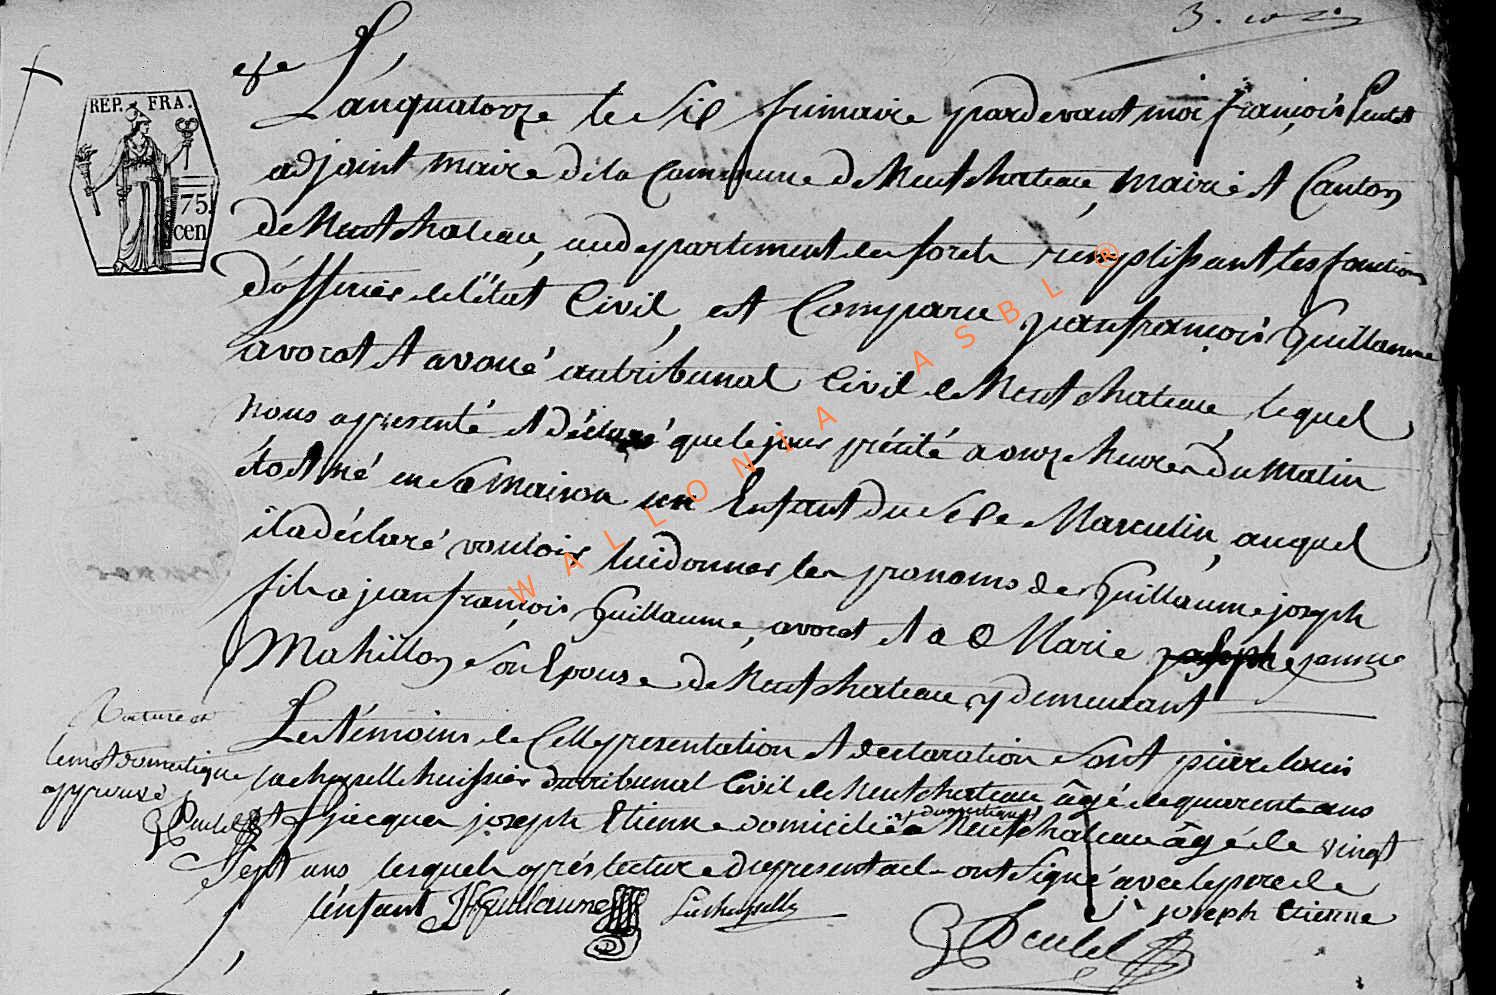 3.
REP. FRA.
75
cen
L'an quatorze le six frimaire pardevant moi françois
adjoint maire de la Commune de Neufchateau, mairie et Canton
de Neufchateau, au departement des forets remplissant les fonctions
d'officier de l'état Civil, est Comparu jean françois Guillaume
avocat et avoué au tribunal Civil de Neufchateau, lequel
nous a presenté et déclaré que le jour précité a onze heures du matin
étoit né en sa maison un Enfant du Sexe Masculin, auquel
il a déclaré vouloir lui donner les pronoms de Guillaume joseph
fils a jean françois Guillaume, avocat et a Marie jeanne
Mahillon son Epouse de Neufchateau y demeurant
Les témoins de Cette presentation et declaration sont pierre louis
lachapelle huissier du tribunal Civil de Neufchateau âgé de quarente ans
et jacques joseph Etienne domestique domicilié a Neufchateau âgé de vingt
Sept ans lesquels après lecture du present acte ont Signé avec le pere de
l'enfant JfGuillaume Lachapelle
j joseph Etienne
Rature et
le mot domestique
approuvé
W A L L O N I A A S B L ®